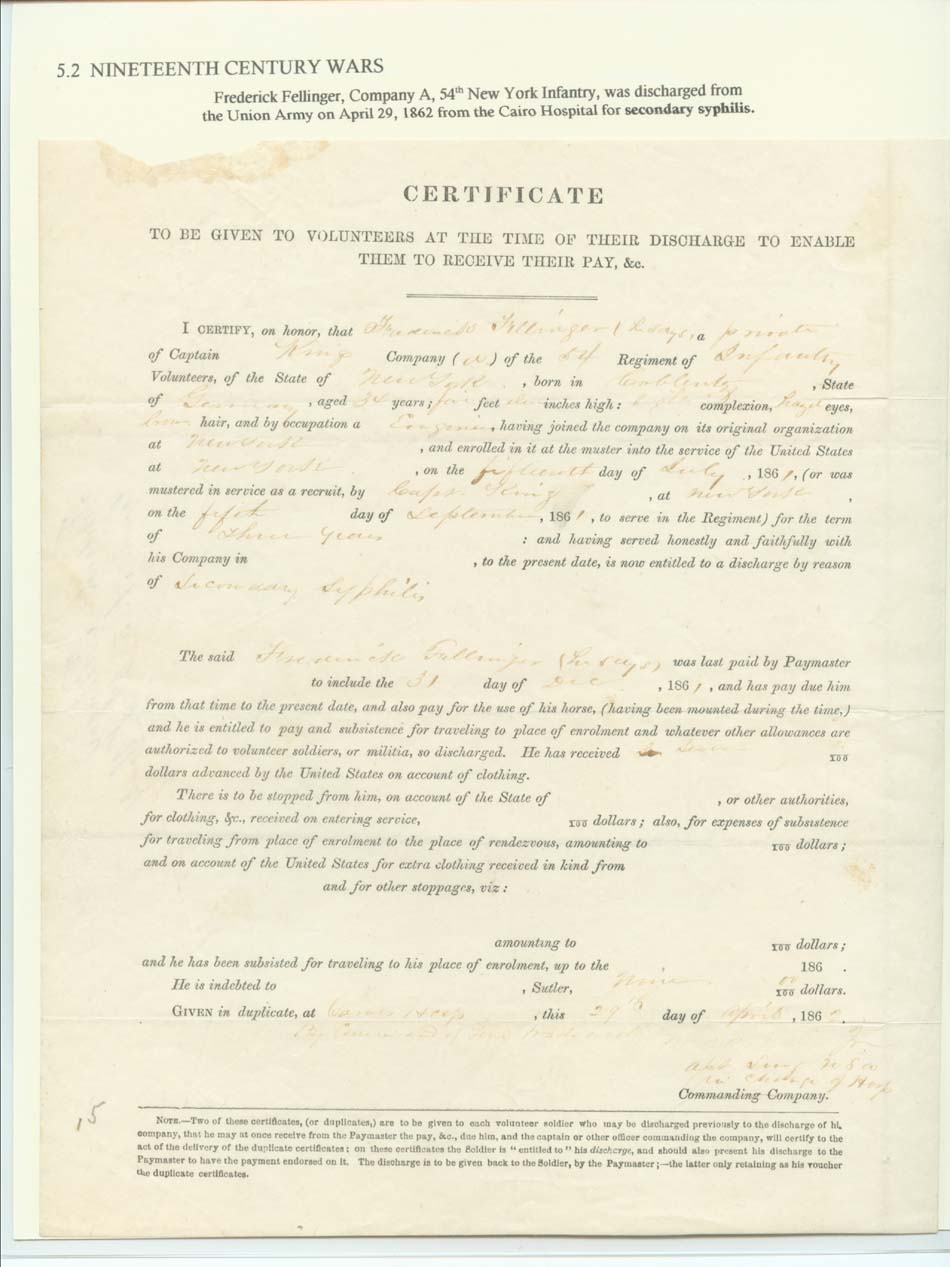 5.2 NINETEENTH CENTURY WARS
Frederick Fellinger, Company A, 54th New York Infantry, was discharged from
the Union Army on April 29, 1862 from the Cairo Hospital for secondary syphilis.
CERTIFICATE
TO BE GIVEN TO VOLUNTEERS AT THE TIME OF THEIR DISCHARGE TO ENABLE
THEM TO RECEIVE THEIR PAY, &c.
I CERTIFY, on honor, that Frederick Fellinger (he says, a private
of Captain King Company (A) of the 54 Regiment of Infantry
Volunteers, of the State of New York, born in Coblentz, State
of Germany, aged 34 years; feet inches high: complexion, hazel eyes,
hair, and by occupation a, having joined the company on its original organization
at New York, and enrolled in it at the muster into the service of the United States
at New York, on the fifteenth day of July, 1861, (or was
mustered in service as a recruit, by Capt. King, at New York,
on the fifth day of September, 1861, to serve in the Regiment) for the term
of three years: and having served honestly and faithfully with
his Company in, to the present date, is now entitled to a discharge by reason
of Secondary Syphilis
The said Frederick Fellinger (he says) was last paid by Paymaster
to include the 31 day of Dec, 1861, and has pay due him
from that time to the present date, and also pay for the use of his horse, (having been mounted during the time,)
and he is entitled to pay and subsistence for traveling to place of enrolment and whatever other allowances are
authorized to volunteer soldiers, or militia, so discharged. He has received 100
dollars advanced by the United States on account of clothing.
There is to be stopped from him, on account of the State of, or other authorities,
for clothing, &c., received on entering service, 100 dollars; also, for expenses of subsistence
for traveling from place of enrolment to the place of rendezvous, amounting to 100 dollars;
and on account of the United States for extra clothing received in kind from
and for other stoppages, viz:
amounting to 100 dollars;
and he has been subsisted for traveling to his place of enrolment, up to the 186 .
He is indebted to, Sutler, None 00/100 dollars.
GIVEN in duplicate, at, this 29th day of April, 186 .
By Command of
in charge of Hosp
Commanding Company.
,5
NOTE.—Two of these certificates, (or duplicates,) are to be given to each volunteer soldier who may be discharged previously to the discharge of hi.
company, that he may at once receive from the Paymaster the pay, &c., due him, and the captain or other officer commanding the company, will certify to the
act of the delivery of the duplicate certificates; on these certificates the Soldier is "entitled to" his discharge, and should also present his discharge to the
Paymaster to have the payment endorsed on it. The discharge is to be given back to the Soldier, by the Paymaster;—the latter only retaining as his voucher
the duplicate certificates.